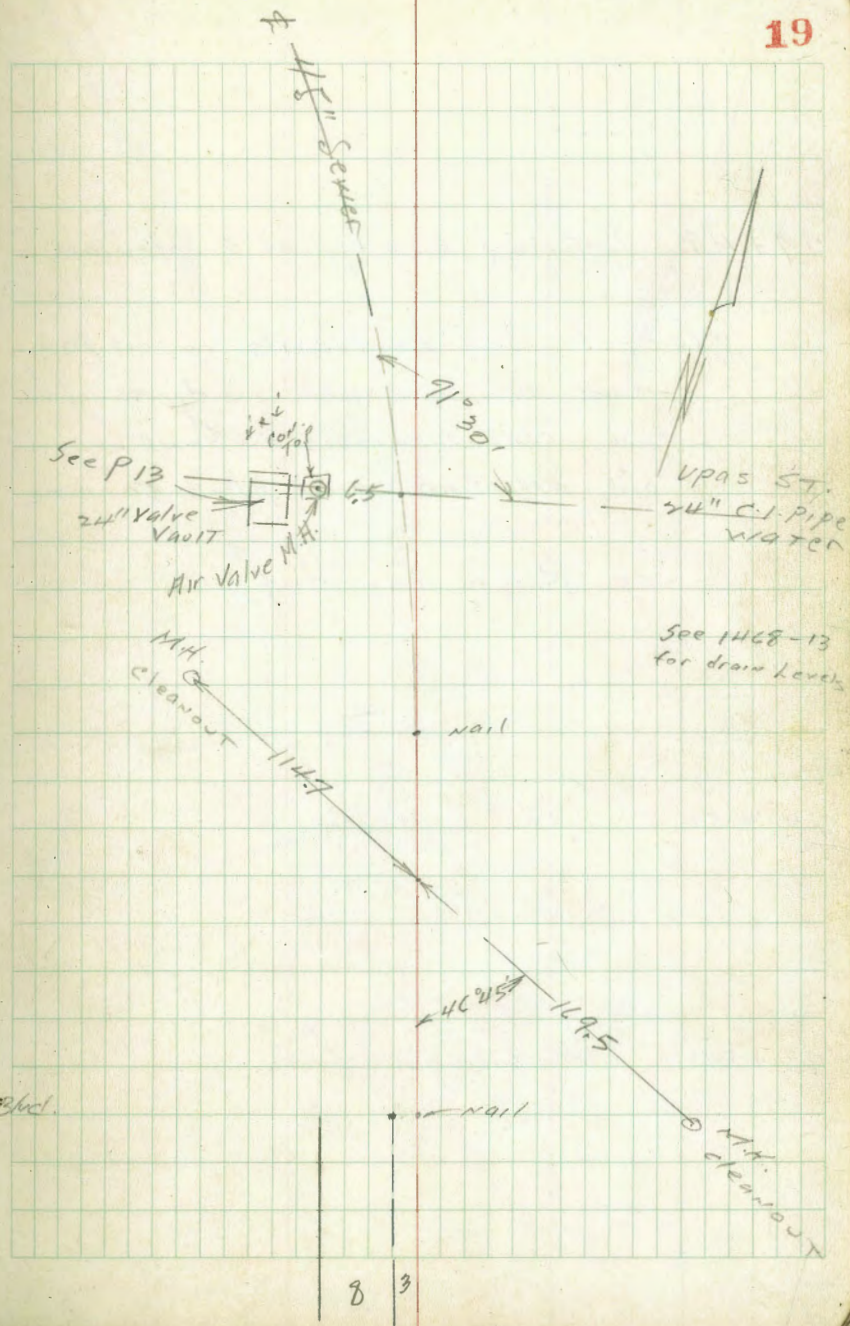 19
48" Sewer
91° 30'
See P 13
24" Valve
Vault
6.5
Air Valve M.H.
Upas ST.
24" C.I. Pipe
Water
See 1468-13
for drain Levels
M.H.
Cleanout
nail
114.7
46°45'
169.5
Blvd.
nail
M.H.
cleanout
8
3